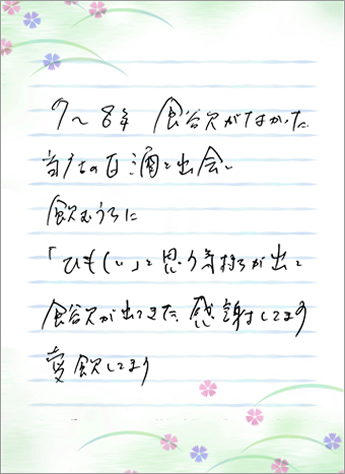 7〜8年 食欲がなかった
当店の百酒と出会い
飲むうちに
「ひもじい」と思う気持ちが出て
食欲が出てきた 感謝してます
愛飲してます